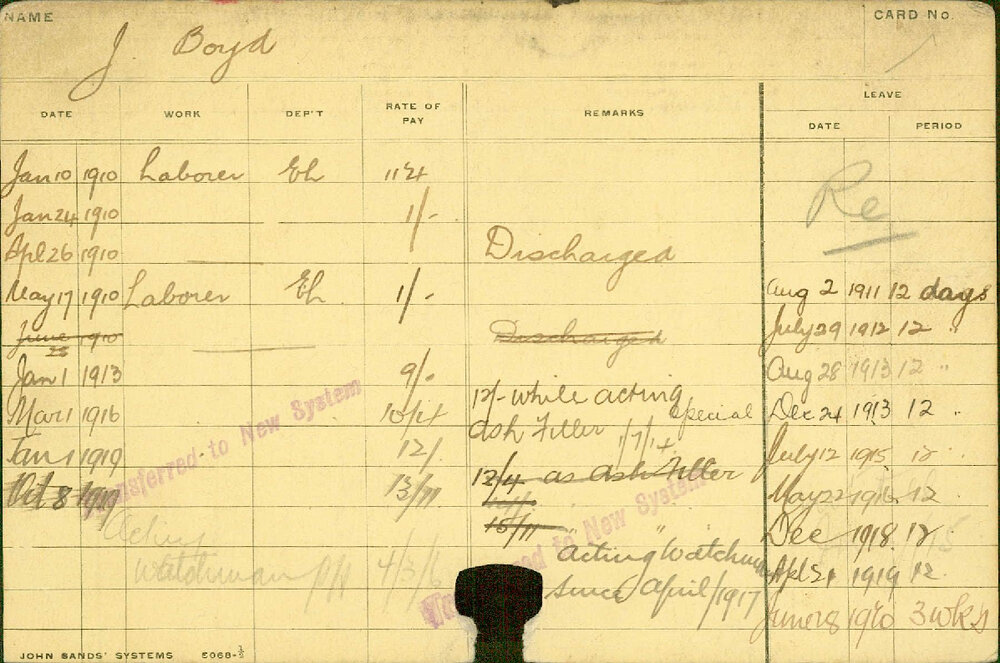 NAME
J Boyd
CARD No.
DATE WORK DEP'T RATE OF PAY REMARKS LEAVE
DATE PERIOD
Re
Jan 10 1910 Laborer Eh
Jan 24 1910 1/-
Apl 26 1910 Discharged
May 17 1910 Laborer Eh 1/- Aug 2 1911 12 days
June 28 1910 Discharged July 29 1912 12 "
Jan 1 1913 9/- Aug 28 1913 12 "
12/- while acting
Mar 1 1916 10/4 special Dec 24 1913 12 "
Ash Filler 1/7/14
Jan 1 1919 12/- July 12 1915 12
12/4 as Ash Filler
Oct 8 1919 13/11 May 22 1916 12
15/11 " " Dec 1918 12
Acting
acting Watchman Apl 21 1919 12
Watchman 4/3/6
since April/1917
June 18 1920 3 wks
Transferred to New System
Transferred to New System
JOHN SANDS' SYSTEMS E068-